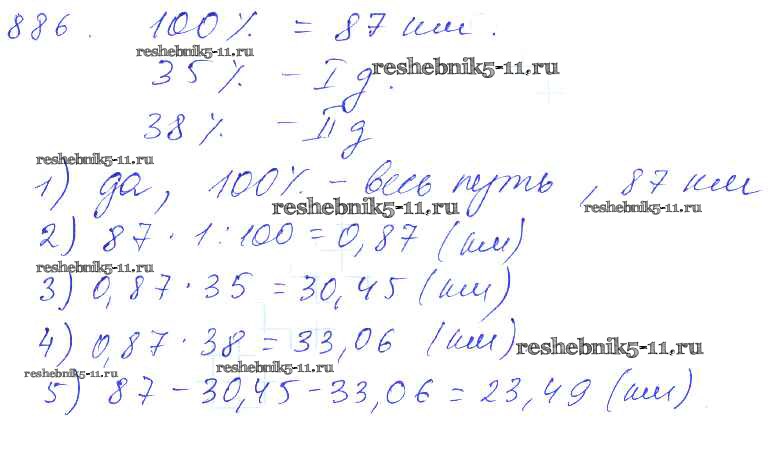 886. 100% = 87 км.
reshebnik5-11.ru
35% – I д.
reshebnik5-11.ru
38% – II д
reshebnik5-11.ru
1) да, 100% – весь путь, 87 км
reshebnik5-11.ru
reshebnik5-11.ru
2) 87 · 1 : 100 = 0,87 (км)
reshebnik5-11.ru
3) 0,87 · 35 = 30,45 (км)
4) 0,87 · 38 = 33,06 (км)
reshebnik5-11.ru
reshebnik5-11.ru
reshebnik5-11.ru
5) 87 – 30,45 – 33,06 = 23,49 (км)